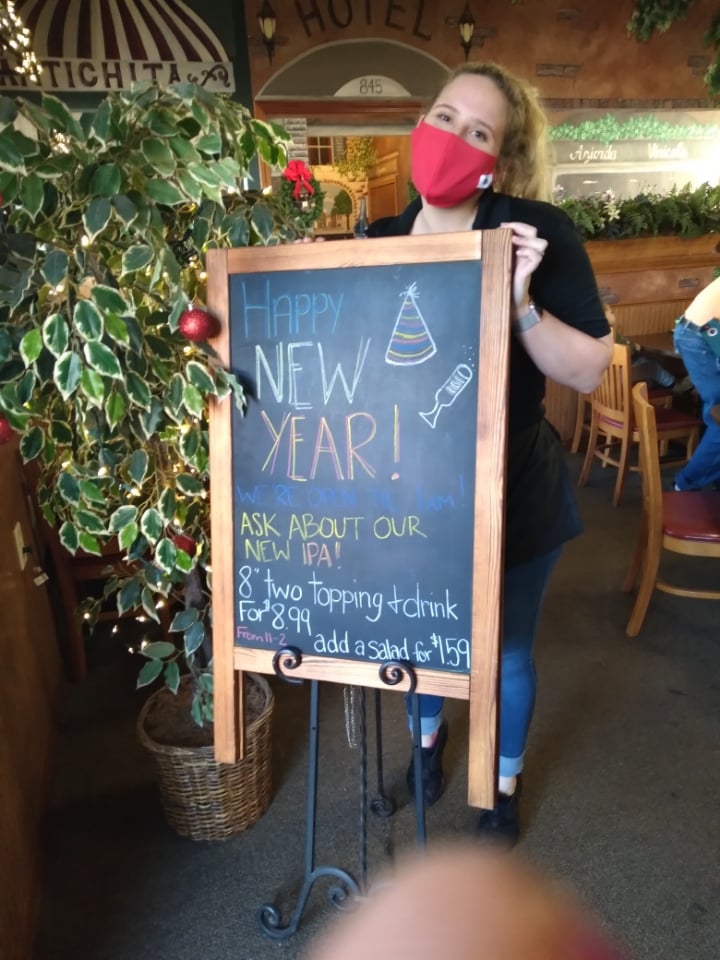 HOTEL
ANTICHITA
845
Azienda Vinicola
HAPPY
NEW
YEAR!
WE'RE OPEN TIL 1am!
ASK ABOUT OUR
NEW IPA!
8" two topping + drink
For $8.99
From 11-2
add a salad for $1.59